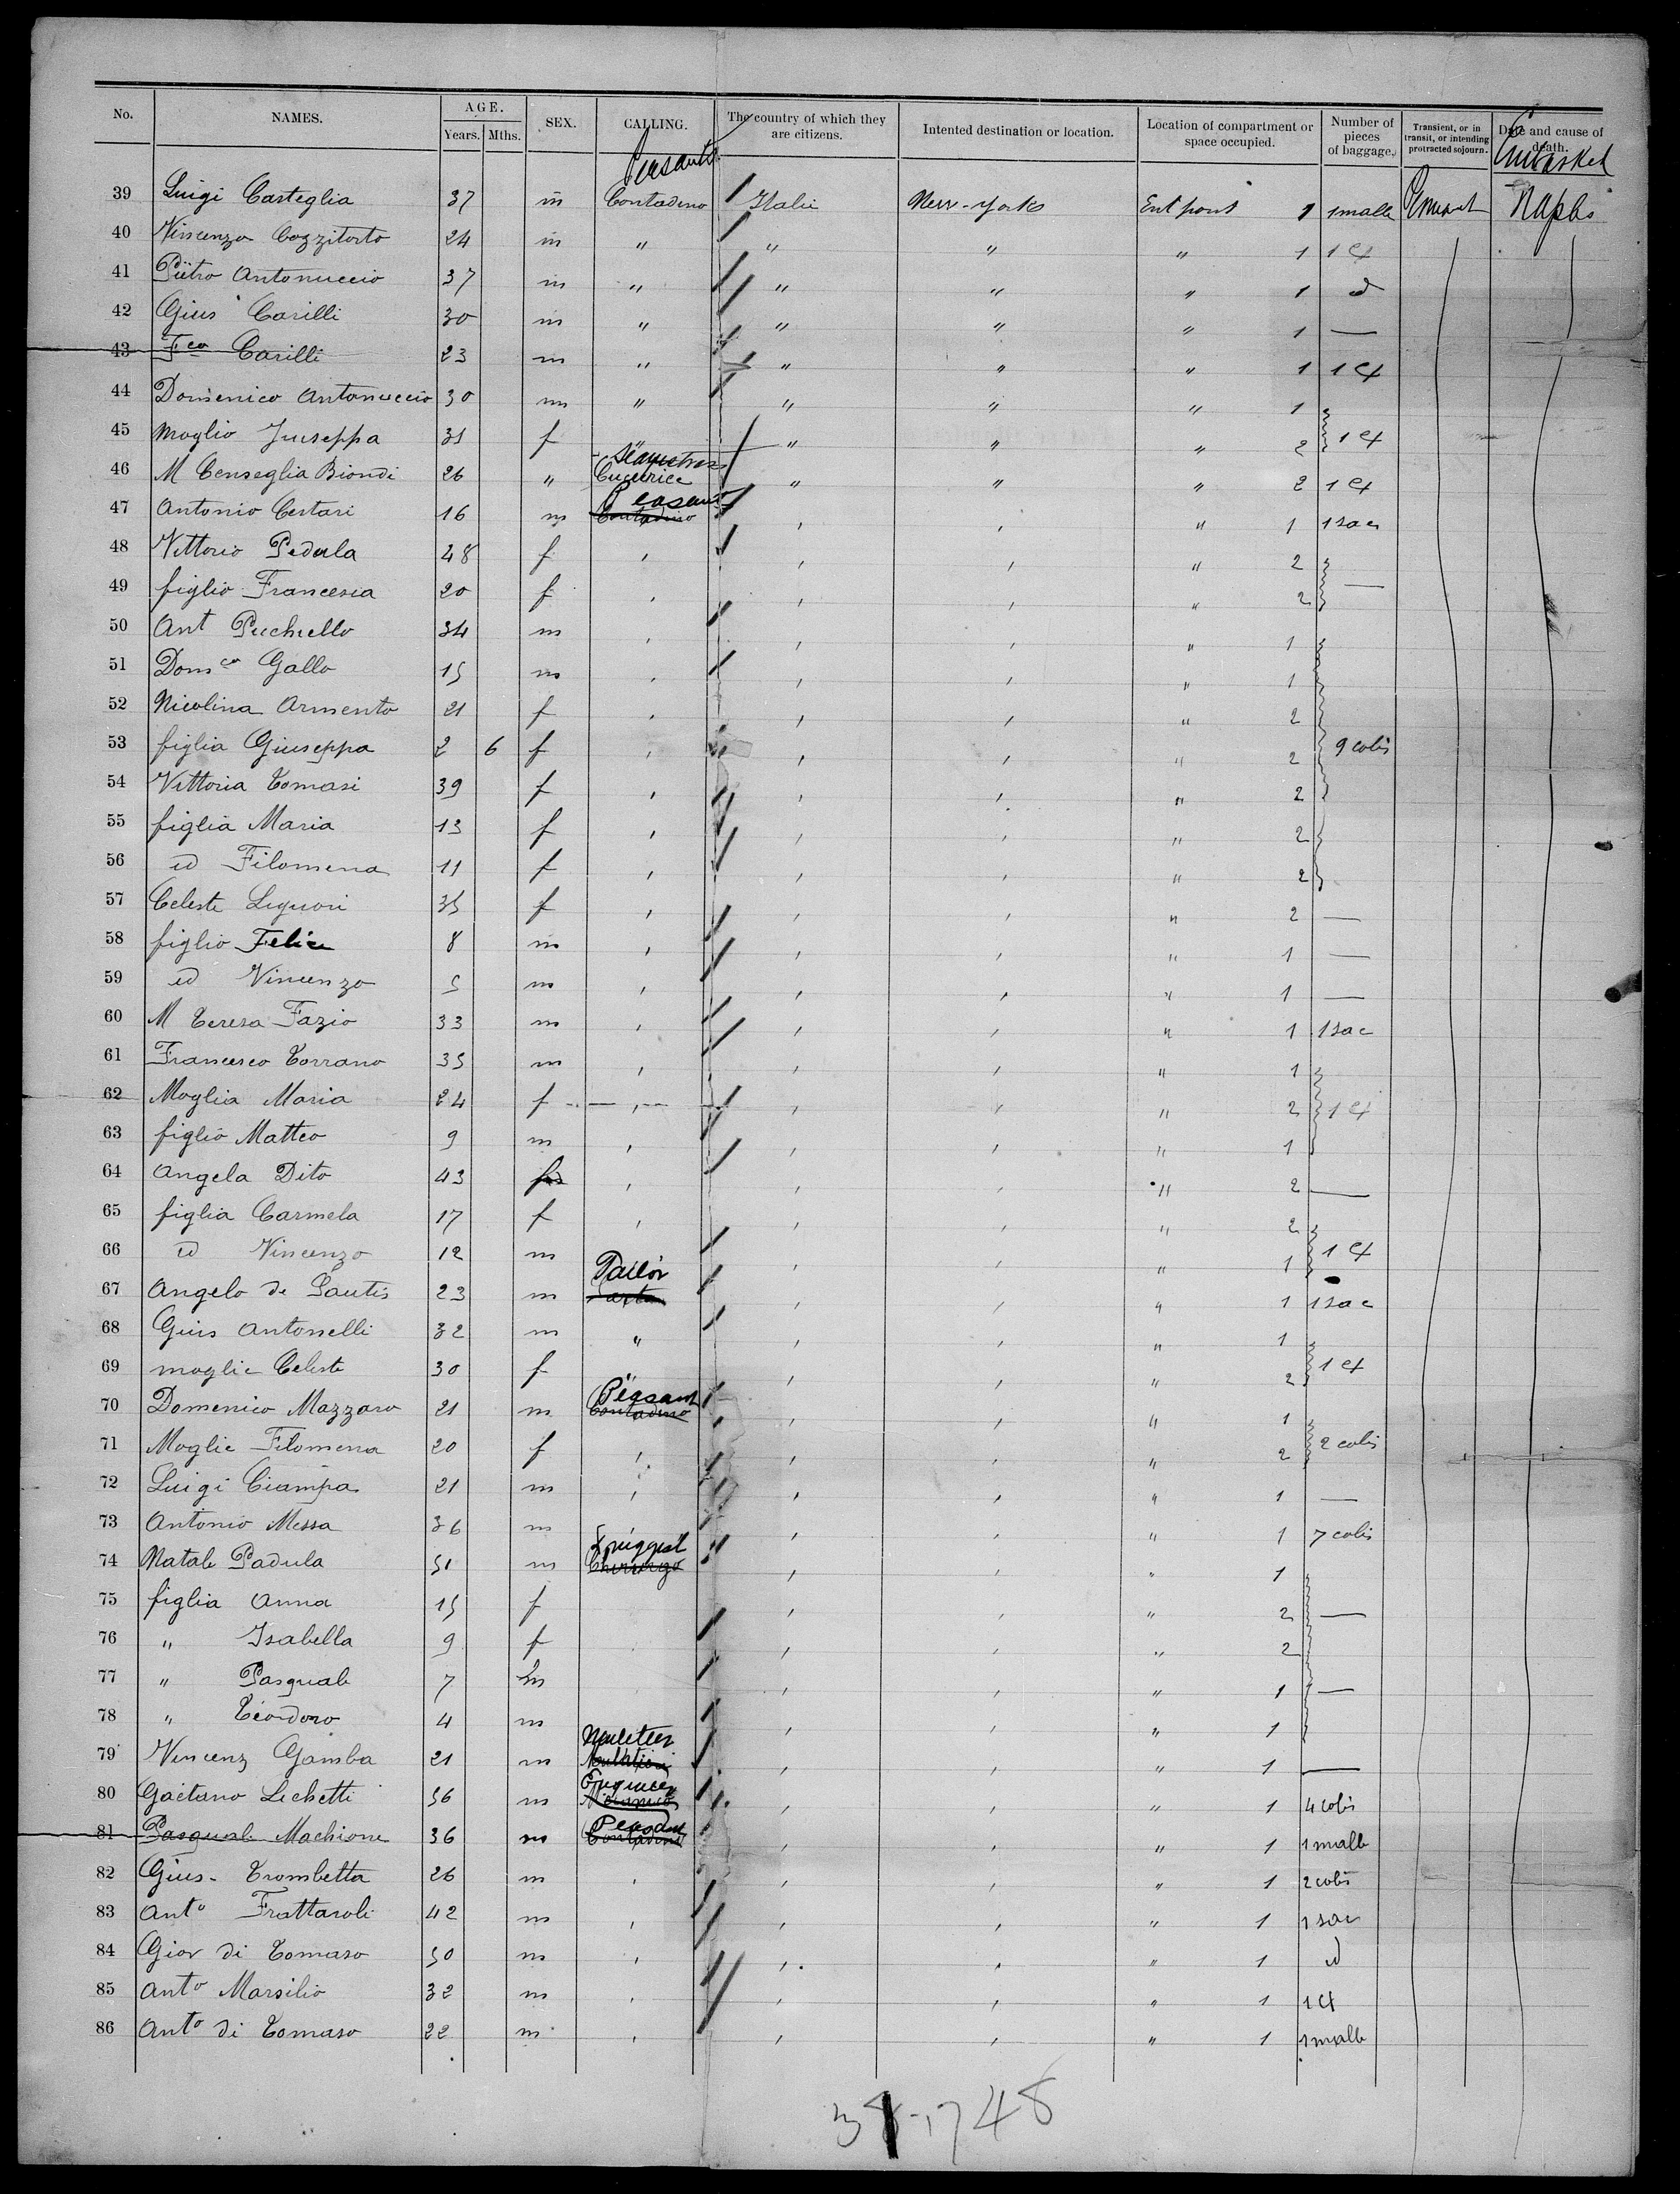 No. NAMES. AGE. Years. Mths. SEX. CALLING. The country of which they are citizens. Intented destination or location. Location of compartment or space occupied. Number of pieces of baggage. Transient, or in transit, or intending protracted sojourn. Date and cause of death.
Peasant Embarked
39 Luigi Casteglia 37 m Contadino Italie New-York Ent pont 1 1 malle Naples
40 Vincenzo Cozzitorto 24 m " " " " 1 1 Cx
41 Pietro Antonuccio 37 m " " " " 1 d
42 Gius Carilli 30 m " " " " 1 —
43 Fco Carilli 23 m " " " " 1 1 Cx
44 Domenico Antonuccio 30 m " " " " 1
45 Moglio Juiseppa 31 f " " " " 2 1 Cx
Seamstress
46 M Censeglia Biondi 26 " Cucitrice " " " 2 1 Cx
Peasant
47 Antonio Certari 16 m Contadino , , " 1 1 sac
48 Vittorio Pedula 48 f , , , " 2
49 figlio Francesia 20 f , , , " 2 —
50 Ant Puchiello 34 m , , , " 1
51 Domco Gallo 15 m , , , " 1
52 Nicolina Armento 21 f , , , " 2
53 figlia Giuseppa 2 6 f , , , " 2 9 colis
54 Vittoria Tomasi 39 f , , , " 2
55 figlia Maria 13 f , , , " 2
56 id Filomena 11 f , , , " 2
57 Celeste Liguori 35 f , , , " 2 —
58 figlio Felice 8 m , , , " 1 —
59 id Vincenzo 5 m , , , " 1 —
60 M Teresa Fazio 33 m , , , " 1 1 sac
61 Francesco Torrano 35 m , , , " 1
62 Moglia Maria 24 f , , , " 2 1 Cx
63 figlio Matteo 9 m , , , " 1
64 Angela Dito 43 f , , , " 2 —
65 figlia Carmela 17 f , , , " 2
66 id Vincenzo 12 m , , " 1 1 Cx
Tailor
67 Angelo de Santis 23 m , , " 1 1 sac
68 Gius Antonelli 32 m " , , " 1
69 moglie Celeste 30 f " , , " 2 1 Cx
Peasant
70 Domenico Mazzaro 21 m Contadino , , " 1
71 Moglie Filomena 20 f , , , " 2 2 colis
72 Luigi Ciampa 21 m , , , " 1 —
73 Antonio Messa 36 m , , , " 1 7 colis
Druggist
74 Natale Padula 51 m Chirurgo , , " 1
75 figlia Anna 15 f , , " 2 —
76 " Isabella 9 f , , " 2
77 " Pasquale 7 m , , " 1 —
78 " Teodoro 4 m , , " 1
Muleteer
79 Vincenz Gamba 21 m , , " 1 —
Engineer
80 Gaetano Lichetti 56 m Mecanico , , " 1 4 colis
Peasant
81 Pasquale Machione 36 m Contadino , , " 1 1 malle
82 Gius- Trombetta 26 m , , , " 1 2 colis
83 Anto Frattaroli 42 m , , , " 1 1 sac
84 Giov di Tomaso 50 m , , , " 1 id
85 Anto Marsilio 32 m , , , " 1 1 Cx
86 Anto di Tomaso 22 m , , , " 1 1 malle